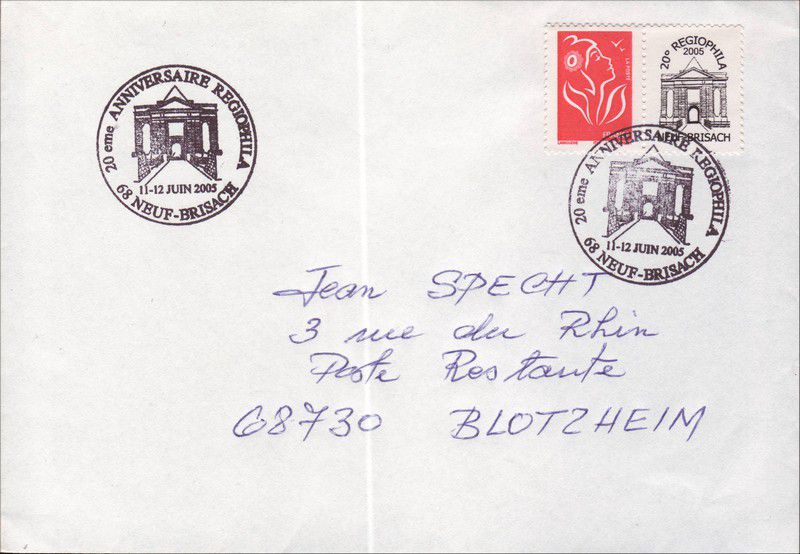 20 eme ANNIVERSAIRE REGIOPHILA
11-12 JUIN 2005
68 NEUF-BRISACH
LA POSTE
20° REGIOPHILA
2005
NEUF-BRISACH
20 eme ANNIVERSAIRE REGIOPHILA
11-12 JUIN 2005
68 NEUF-BRISACH
Jean SPECHT
3 rue du Rhin
Poste Restante
68730 BLOTZHEIM